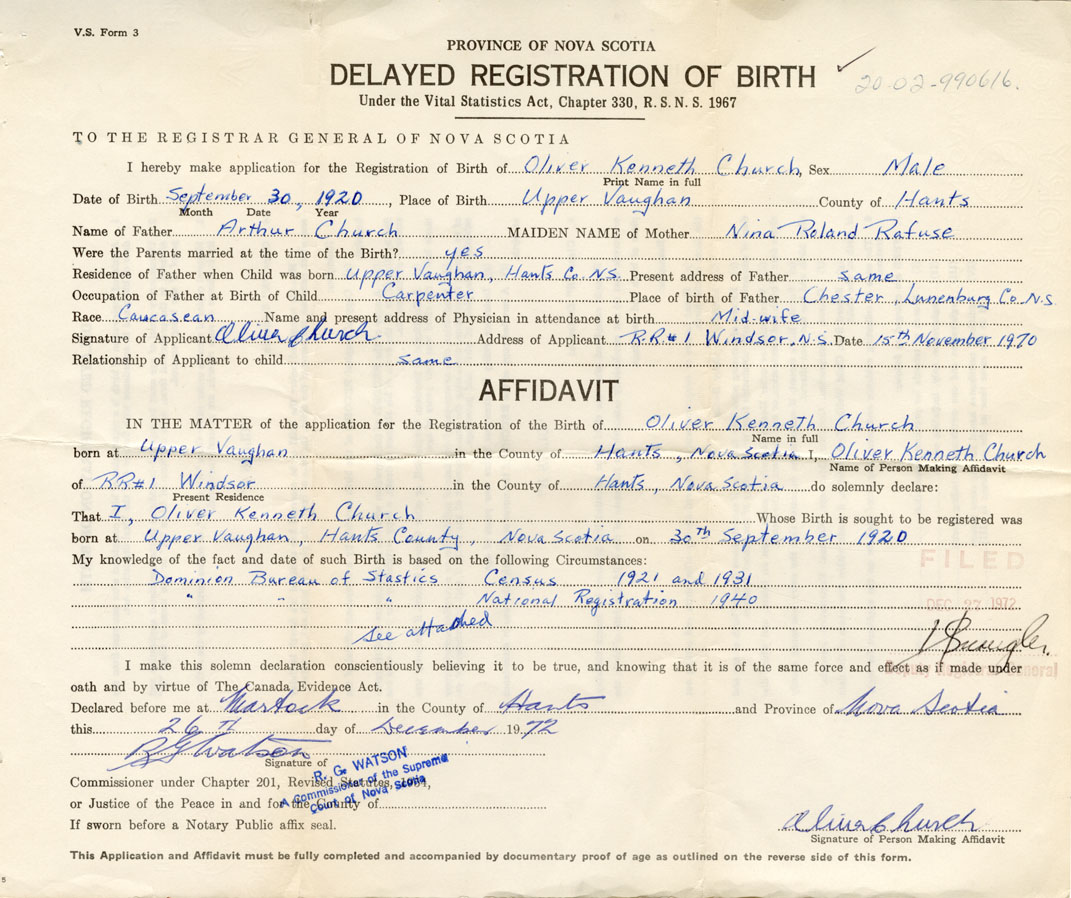 V.S. Form 3
PROVINCE OF NOVA SCOTIA
DELAYED REGISTRATION OF BIRTH ✓ 20-02-990616.
Under the Vital Statistics Act, Chapter 330, R.S.N.S. 1967
TO THE REGISTRAR GENERAL OF NOVA SCOTIA
I hereby make application for the Registration of Birth of Oliver Kenneth Church, Sex Male
Print Name in full
Date of Birth September 30, 1920, Place of Birth Upper Vaughan County of Hants
Month Date Year
Name of Father Arthur Church MAIDEN NAME of Mother Nina Roland Rafuse
Were the Parents married at the time of the Birth? yes
Residence of Father when Child was born Upper Vaughan, Hants Co N.S. Present address of Father same
Occupation of Father at Birth of Child Carpenter Place of birth of Father Chester, Lunenburg Co. N.S
Race Caucasean Name and present address of Physician in attendance at birth Mid-wife
Signature of Applicant Oliver Church Address of Applicant R.R#1 Windsor, N.S. Date 15th November 1970
Relationship of Applicant to child same
AFFIDAVIT
IN THE MATTER of the application for the Registration of the Birth of Oliver Kenneth Church
Name in full
born at Upper Vaughan in the County of Hants, Nova Scotia I, Oliver Kenneth Church
Name of Person Making Affidavit
of RR#1 Windsor in the County of Hants, Nova Scotia do solemnly declare:
Present Residence
That I, Oliver Kenneth Church Whose Birth is sought to be registered was
born at Upper Vaughan, Hants County, Nova Scotia on 30th September 1920
My knowledge of the fact and date of such Birth is based on the following Circumstances:
FILED
Dominion Bureau of Stastics Census 1921 and 1931
" " " National Registration 1940
DEC 27 1972
see attached
I make this solemn declaration conscientiously believing it to be true, and knowing that it is of the same force and effect as if made under
Deputy Registrar General
oath and by virtue of The Canada Evidence Act.
Declared before me at Martock in the County of Hants and Province of Nova Scotia
this 26TH day of December 1972
RG Watson
Signature of
R. G. WATSON
A Commissioner of the Supreme
Court of Nova Scotia
Commissioner under Chapter 201, Revised Statutes, 1954,
or Justice of the Peace in and for the County of
If sworn before a Notary Public affix seal.
Oliver Church
Signature of Person Making Affidavit
This Application and Affidavit must be fully completed and accompanied by documentary proof of age as outlined on the reverse side of this form.
5